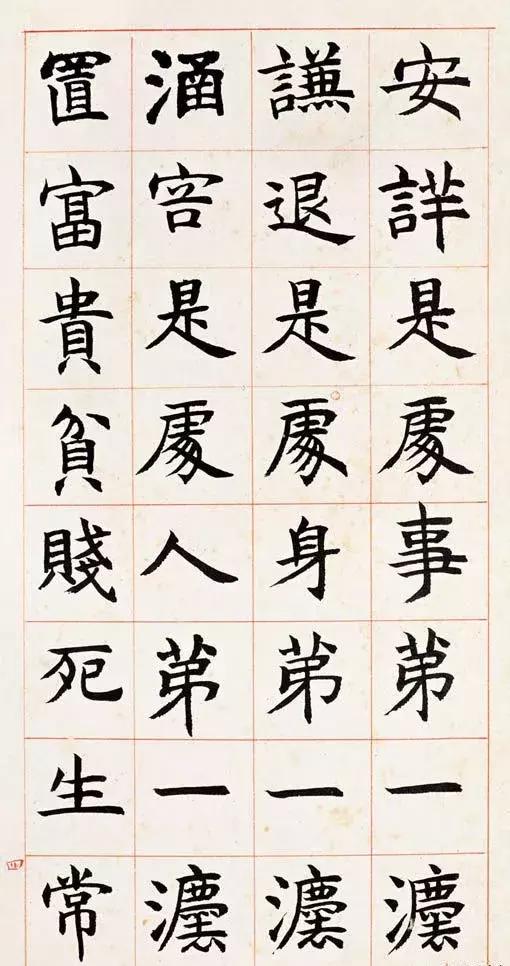 安詳是處事苐一灋
謙退是處身苐一灋
涵容是處人苐一灋
置富貴貧賤死生常